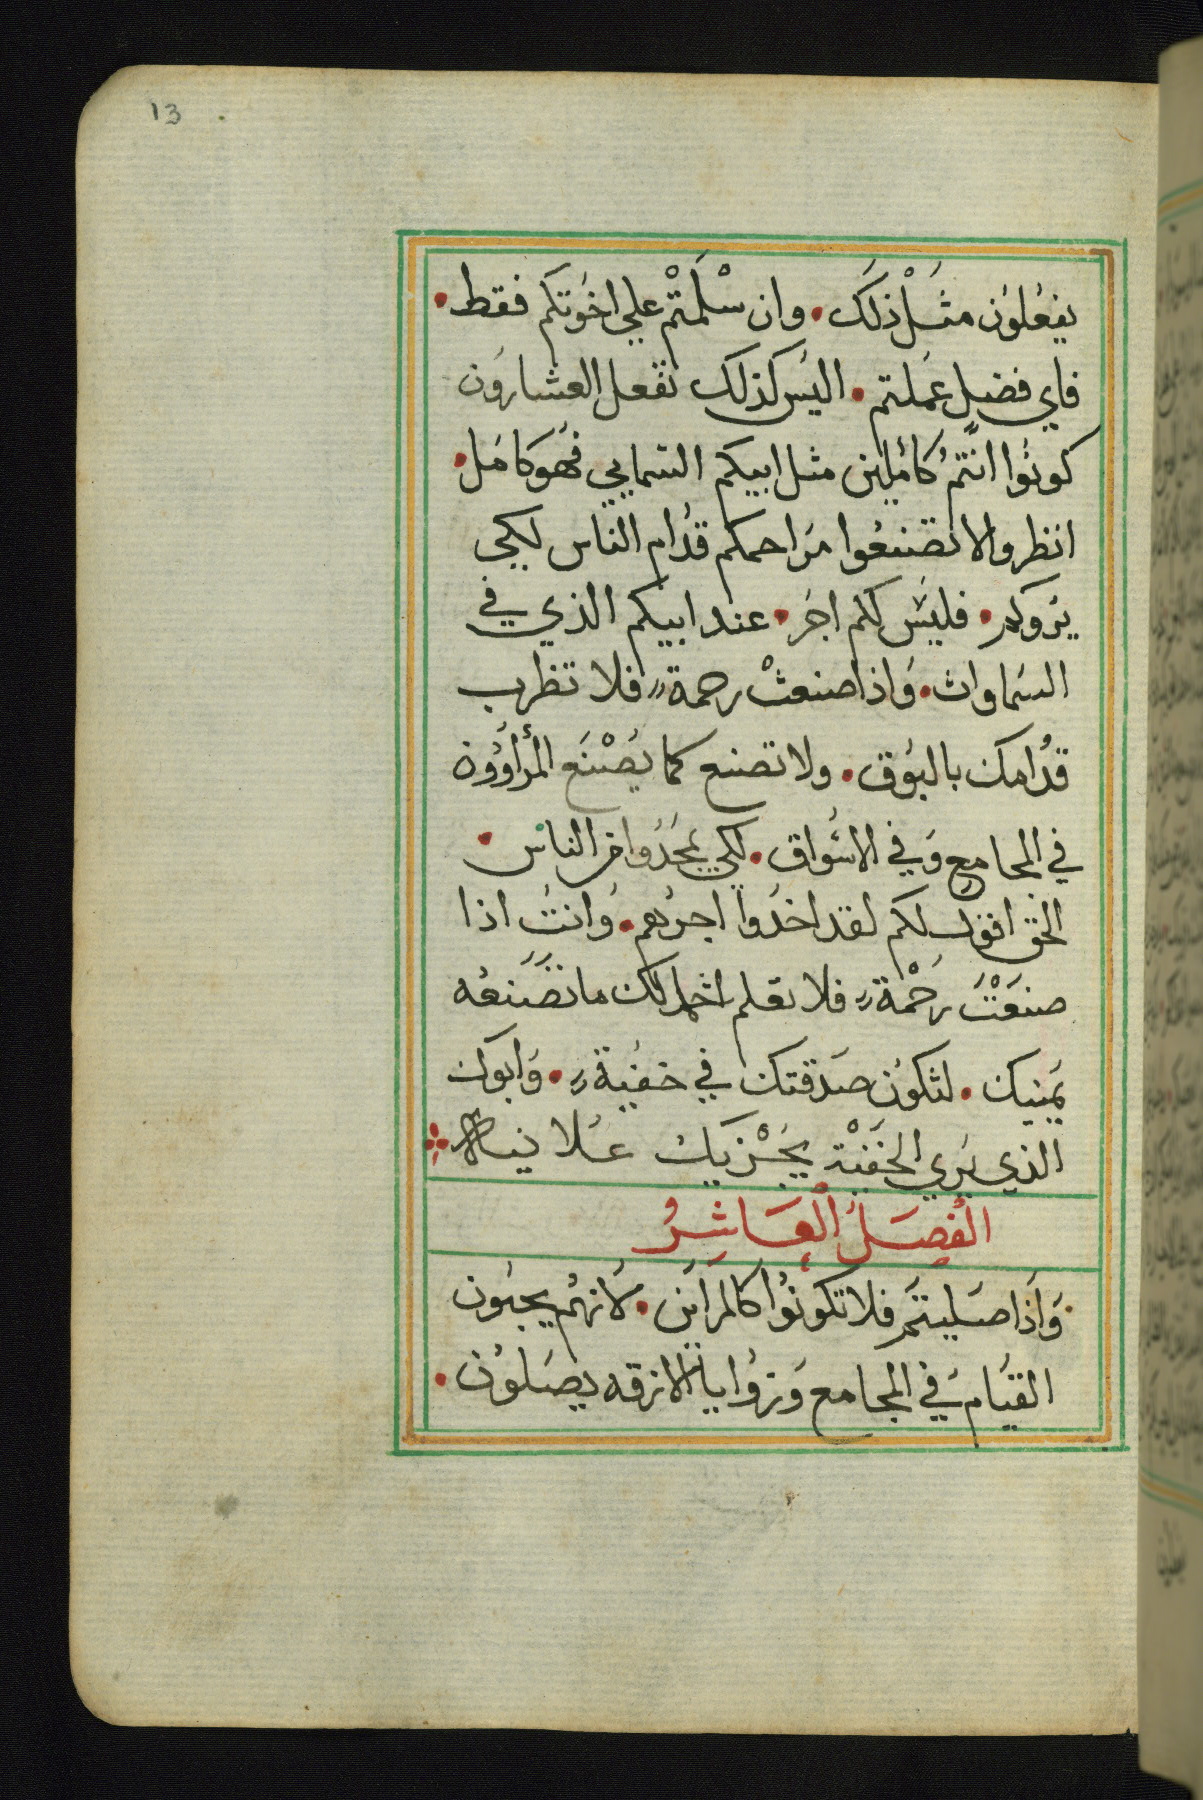 13
يفعلون مثل ذلك. وان سلمتم علي اخوتكم فقط.
فاي فضل عملتم. اليس كذلك تفعل العشارون
كونوا انتم كاملين مثل ابيكم السمايي فهو كامل.
انظروا لا تصنعوا مراحمكم قدام الناس لكي
يروكم. فليس لكم اجر. عند ابيكم الذي في
السماوات. واذا صنعت رحمة فلا تظرب
قدامك بالبوق. ولا تصنع كما يصنع المرأوون
في المجامع وفي الاسواق. لكي يمجدوا من الناس.
الحق اقول لكم لقد اخدوا اجرهم. وانت اذا
صنعت رحمة فلا تعلم شمالك ما تصنعه
يمينك. لتكون صدقتك في خفية. وابوك
الذي يري الخفية يجزيك علانية
الفصل العاشر
واذا صليتم فلا تكونوا كالمرائين. لانهم يحبون
القيام في المجامع وزوايا الازقه يصلون.